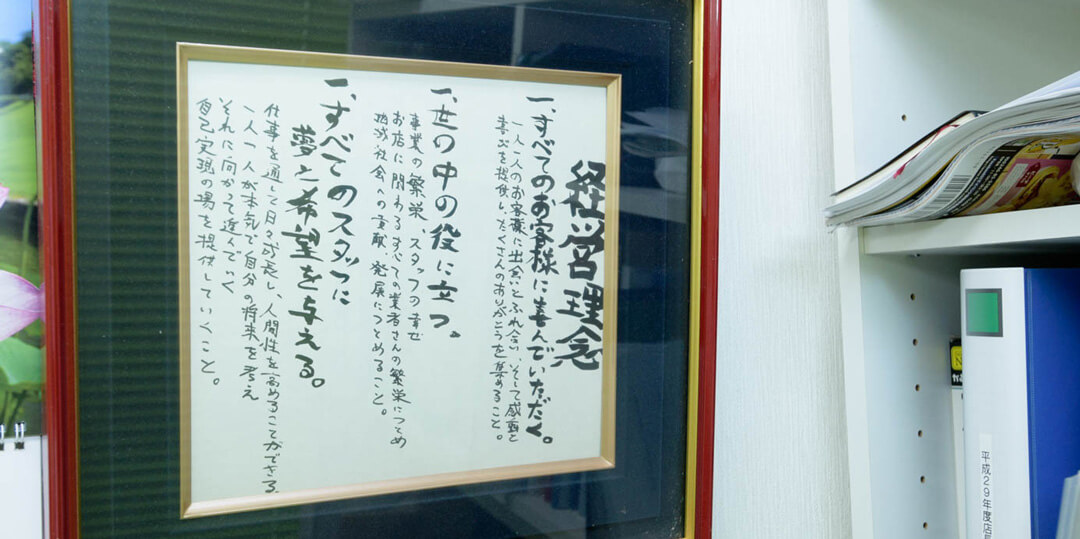 経営理念
一、すべてのお客様に喜んでいただく。
一人一人のお客様に出会いとふれ合い、そして感動と
喜びを提供し、たくさんのありがとうを集めること。
一、世の中の役に立つ。
事業の繁栄、スタッフの幸せ
お店に関わるすべての業者さんの繁栄につとめ
地域社会への貢献、発展につとめること。
一、すべてのスタッフに
夢と希望を与える。
仕事を通して日々成長し、人間性を高めることができる、
一人一人が本気で自分の将来を考え
それに向かって進んでいく
自己実現の場を提供していくこと。
平成29年度店長